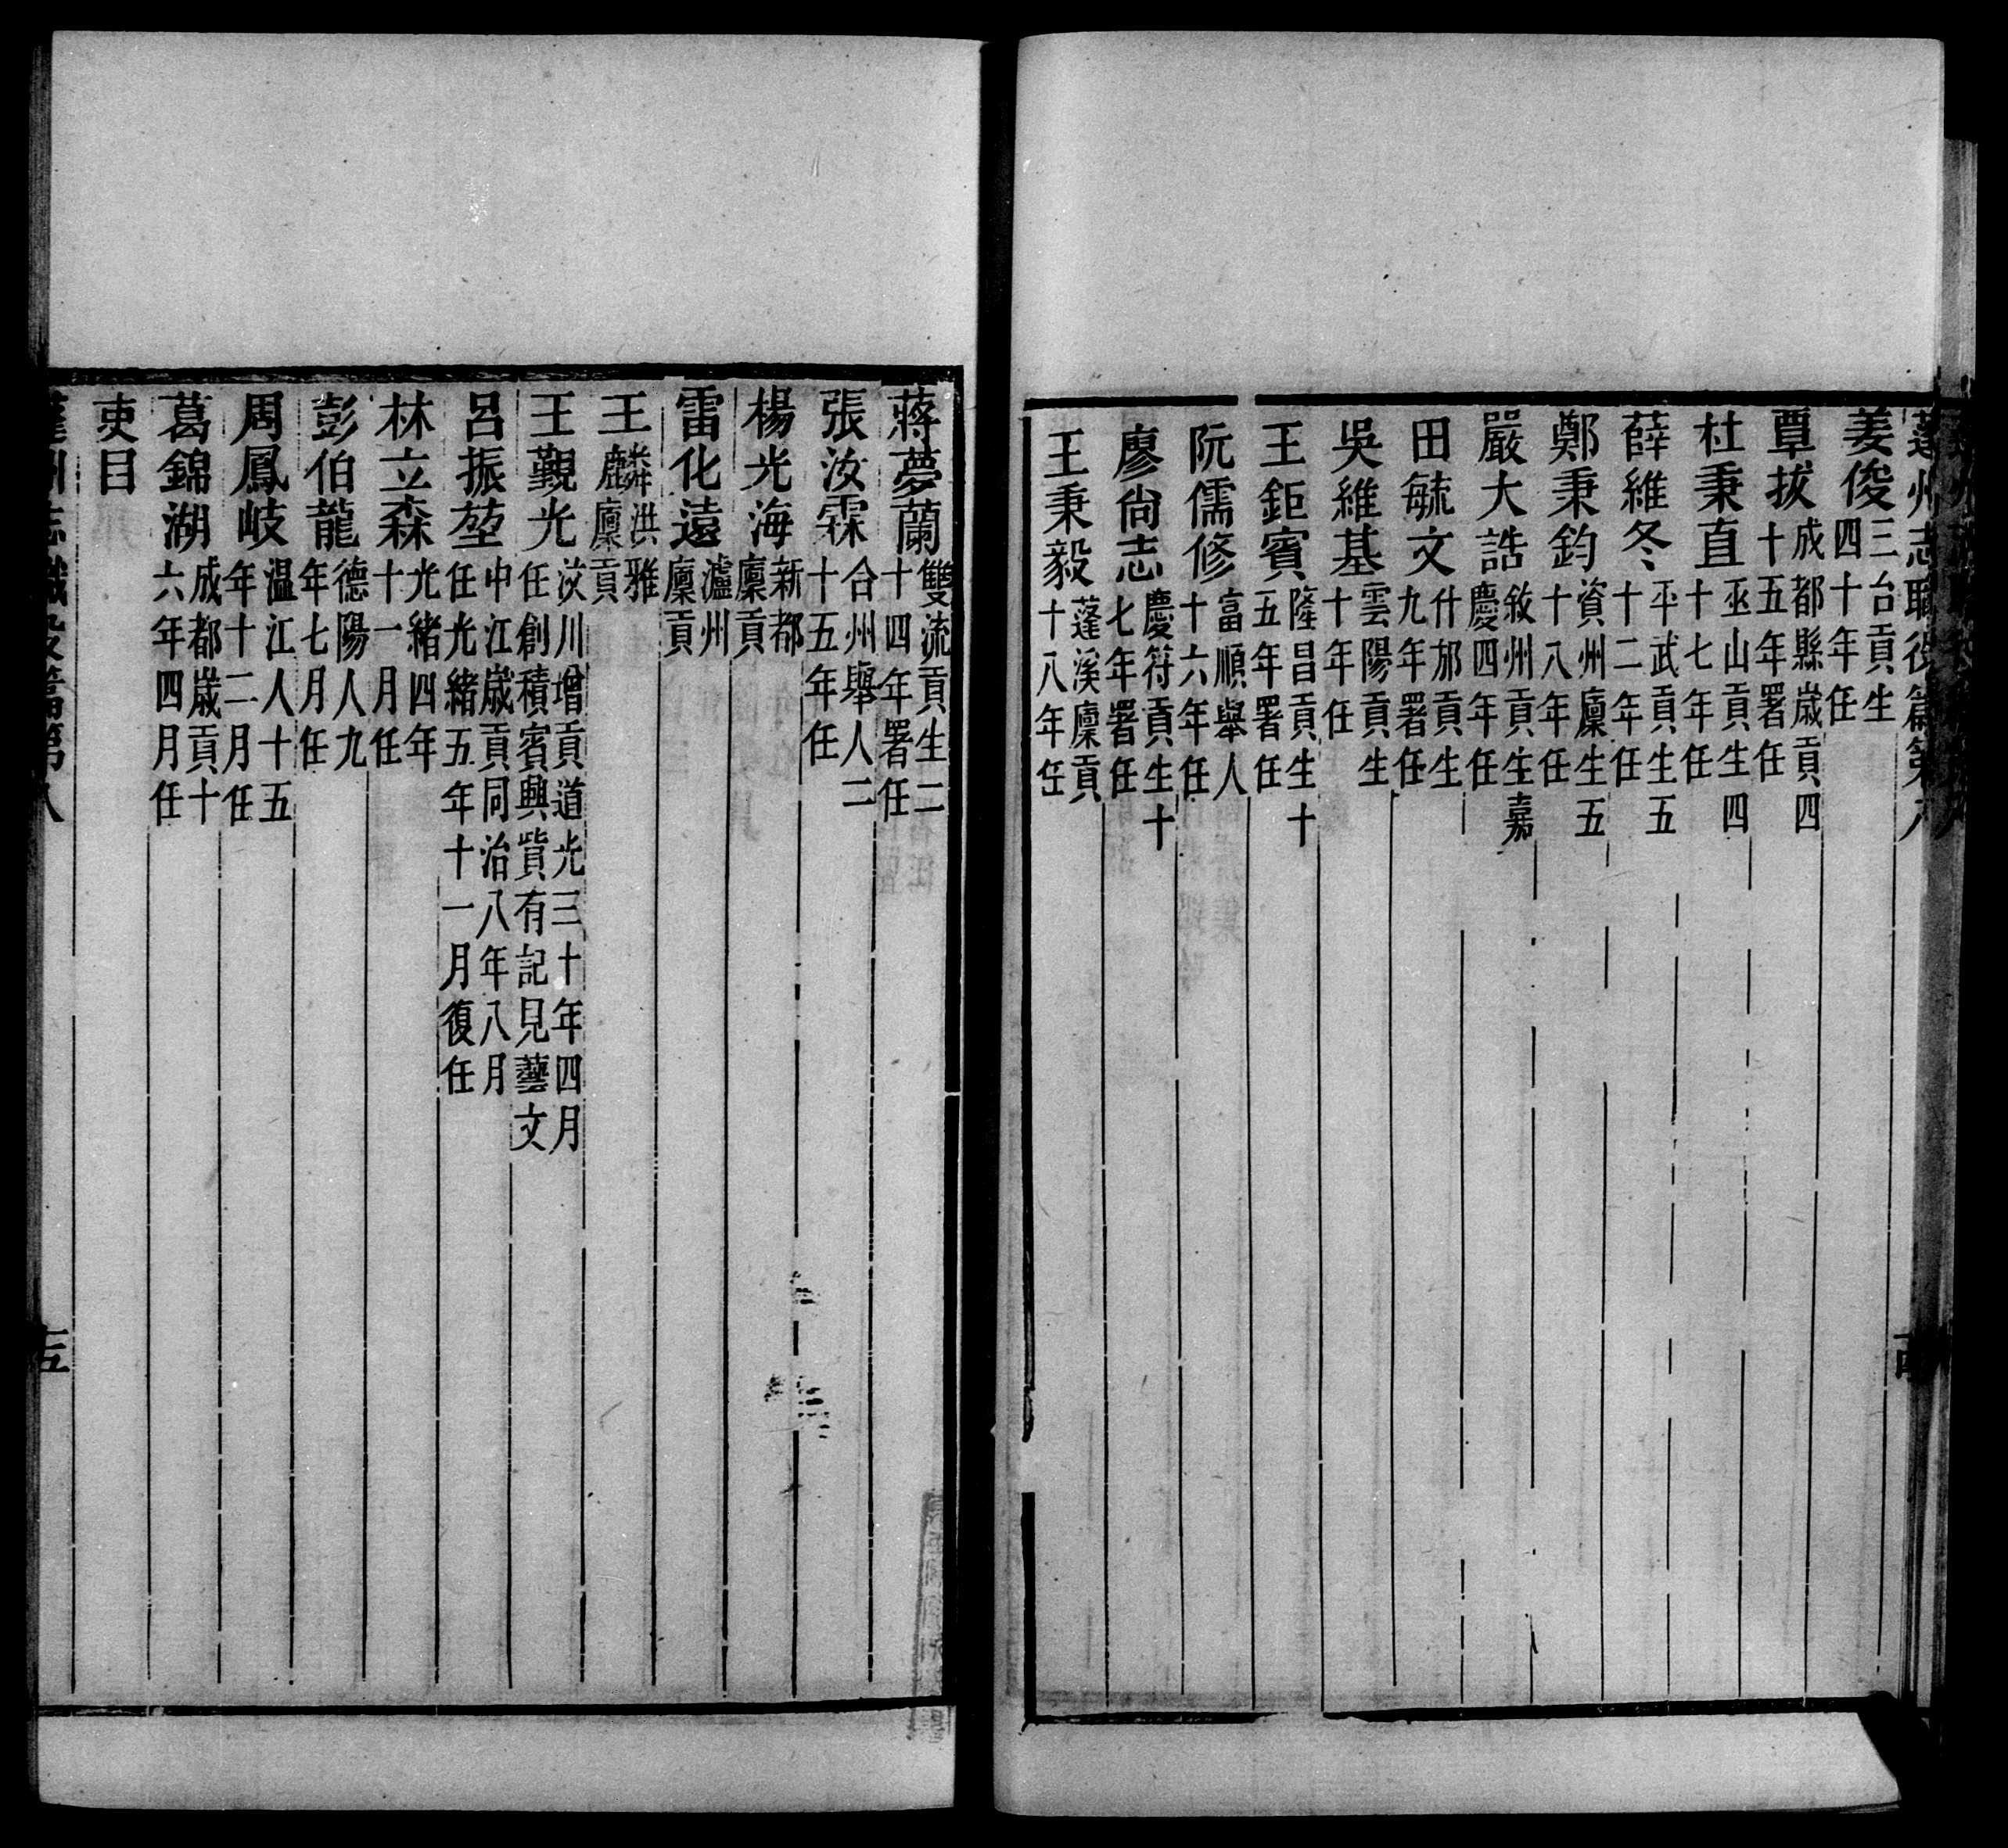 蓬州志職役篇第八
姜俊三台貢生四十年任
覃拔成都縣歲貢四十五年署任
杜秉直巫山貢生四十七年任
薛維冬平武貢生五十二年任
鄭秉鈞資州廩生五十八年任
嚴大誥敘州貢生嘉慶四年任
田毓文什邡貢生九年署任
吳維基雲陽貢生十年任
王鉅賓隆昌貢生十五年署任
阮儒修富順舉人十六年任
廖尙志慶符貢生十七年署任
王秉毅蓬溪廩貢十八年任
蔣夢蘭雙流貢生二十四年署任
張汝霖合州舉人二十五年任
楊光海新都廩貢
雷化遠瀘州廩貢
王麟洪雅廩貢
王覲光汶川增貢道光三十年四月任創積賓興貲有記見藝文
呂振堃中江歲貢同治八年八月任光緒五年十一月復任
林立森光緒四年十一月任
彭伯龍德陽人九年七月任
周鳳岐温江人十五年十二月任
葛錦湖成都歲貢十六年四月任
吏目
蓬州志職役篇第八
十五